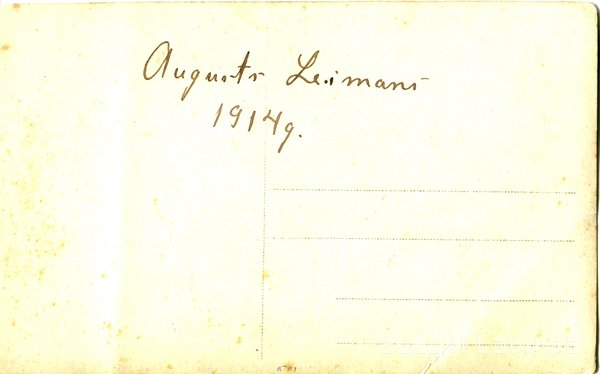 Augusts Leimans
1914g.